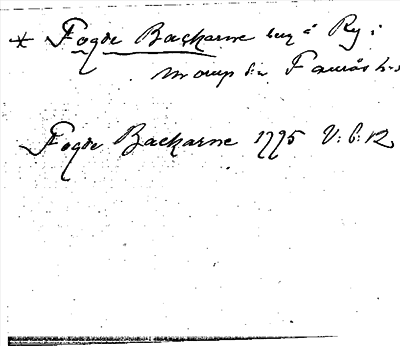 * Fogde Backarne berg å Ry i
Morup s:n Faurås h-d
Fogde Backarne 1795 V: b: 12